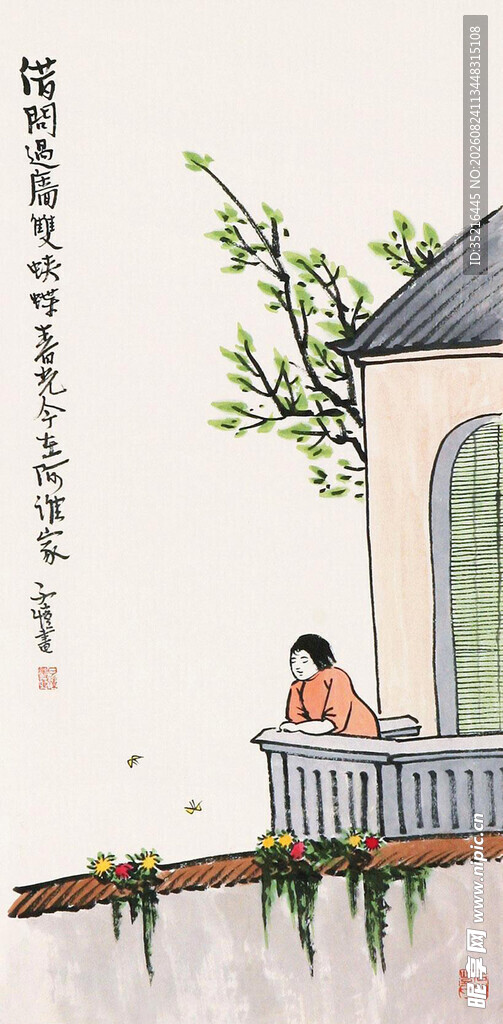 借問過廧雙蛺蝶春光今在阿誰家
子愷畫
ID:35216445 NO:20260824113448315108
昵享网 www.nipic.cn